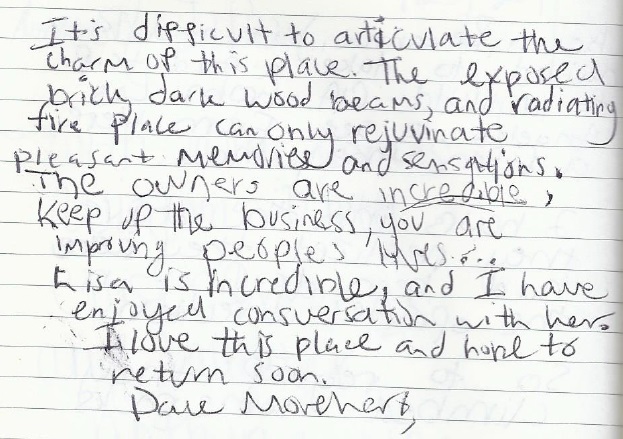 It's difficult to articulate the
charm of this place. The exposed
brick, dark wood beams, and radiating
fire place can only rejuvinate
pleasant memories and sensations.
The owners are incredible,
Keep up the business, you are
improving peoples lives...
Lisa is incredible, and I have
enjoyed consversation with her.
I love this place and hope to
return soon.
Dave